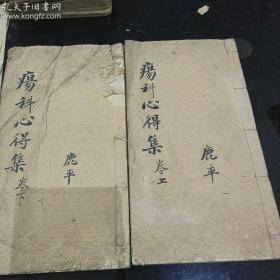 孔夫子旧书网
kongfz.com
瘍科心得集 卷上
鹿平
瘍科心得集 卷下
鹿平